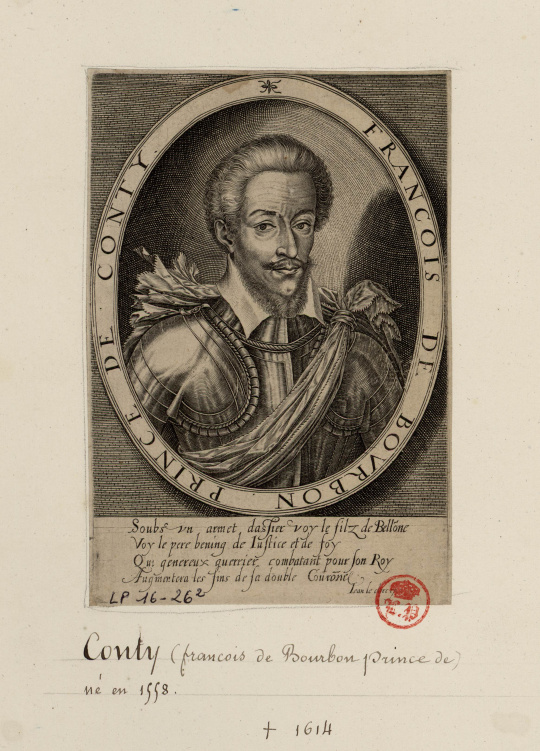 FRANCOIS DE BOVRBON PRINCE DE CONTY.
Soubs vn armet dassier voy le filz de Bellone
Voy le pere bening de Iustice et de foy
Qui genereux guerrier combatant pour son Roy
Augmentera les fins de sa double Couronë
Ioan le
LP 16-26²
Conty (francois de Bourbon prince de)
né en 1558.
† 1614